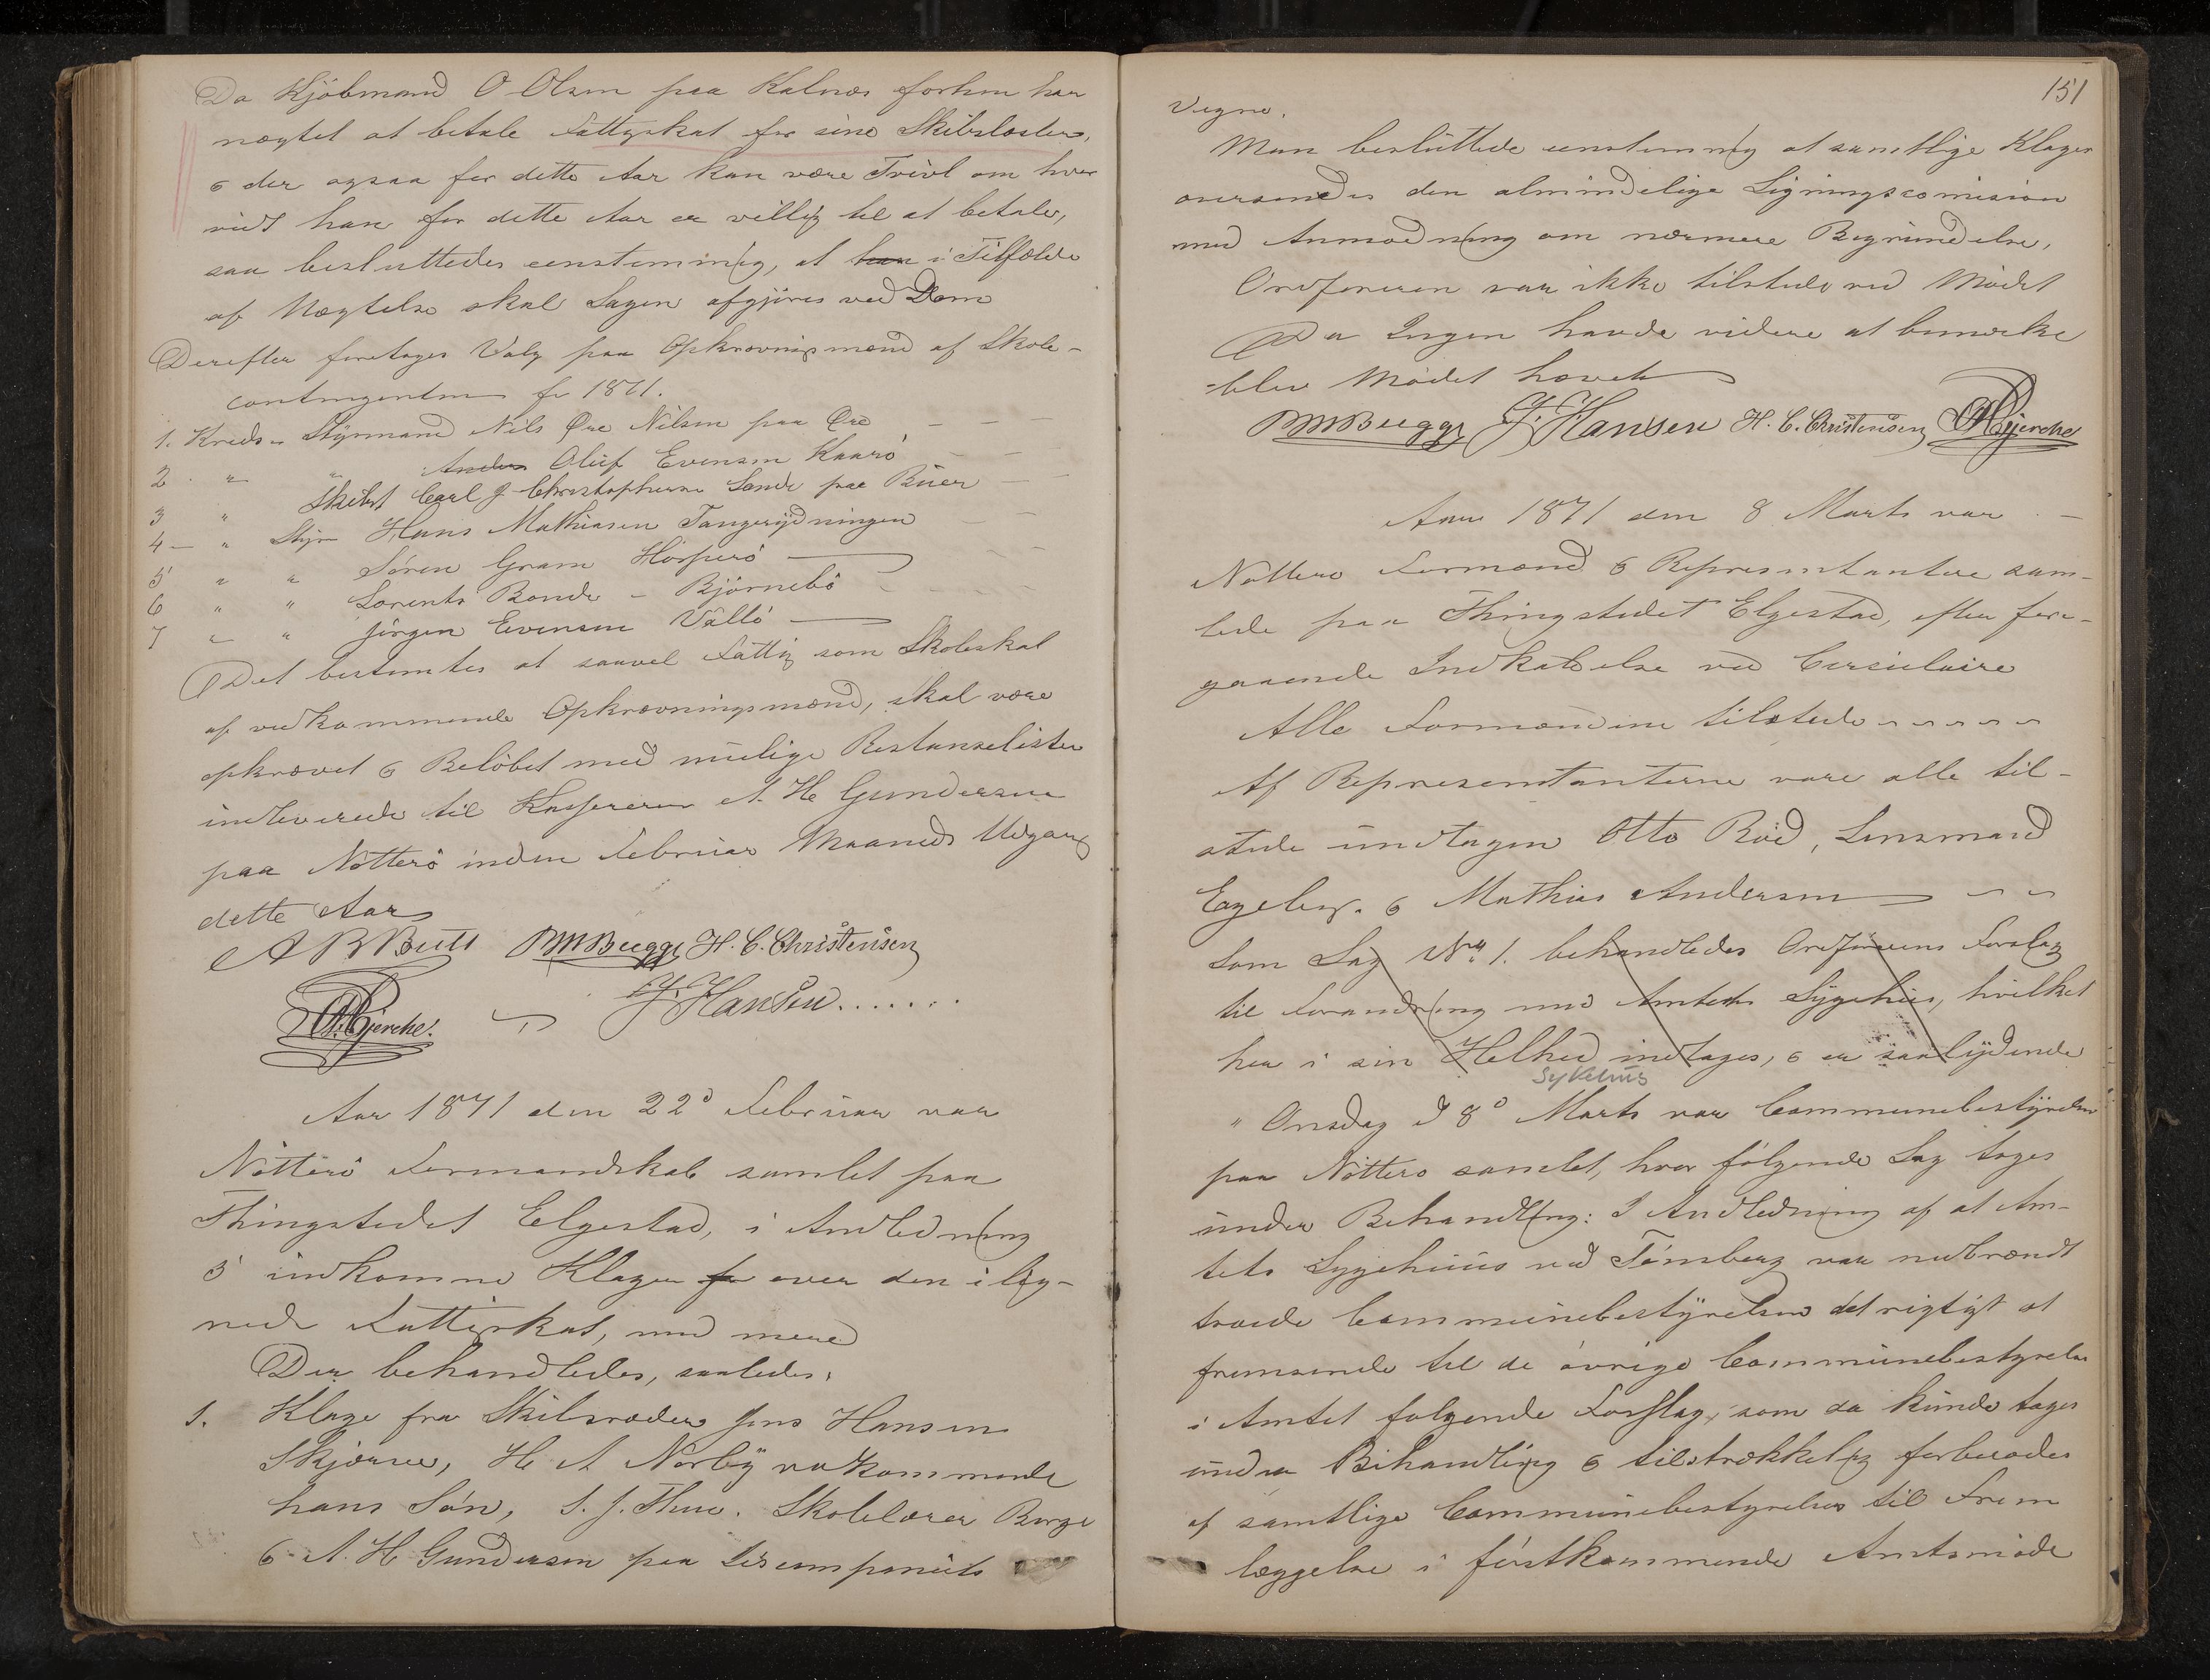 Da Kjöbmand O Olsen paa Kalnæs forhen har
nægtet at betale Fattigskat for sine Skibslæster,
& der ogsaa for dette Aar kan være Tvivl om hvor
vidt han for dette Aar er villig til at betale,
saa besluttedes eenstemmig, at han i Tilfælde
af Nægtelse skal Sagen afgjöres ved Dom
Derefter foretages Valg paa Opkrævningsmænd af Skole-
contingenten for 1871.
1. Kreds - Styrmand Nils Öre Nilsen paa Öre
2 " " Anders Oluf Evensen Kaarö
3 " Skibst Carl J Christophersen Sande paa Buer
4 - " Styr Hans Mathiasen Tangerydningen
5 " " Sören Gram Hörperö
6 " " Lorents Bonde - Björnebö
7 " " Jörgen Evensen Vallö
Det bestemtes at saavel Fattig som Skoleskat
af vedkommende Opkrævningsmænd, skal være
opkrævet & Belöbet med mulige Restanselister
indleverede til Kassereren A. H Gundersen
paa Nötterö inden Februar Maaneds Udgang
dette Aar
A B Bull BMBugge H. C. Christensen
A. Bjerche. J. Hansen.......
Aar 1871 den 22d Februar var
Nötterö Formandskab samlet paa
Thingstedet Elgestad, i Andledning
5 indkomne Klager fr over den ilig-
nede Fattigskat, med mere
Der behandledes, saaledes:
1. Klage fra Skibsreder Jens Hansen
Skjærsø, H A Norby vedkommende
hans Sön, S. J. Thue. Skolelærer Borge
& A. H Gundersen paa Discompaniets
151
Vegne.
Man besluttede eenstemmig at samtlige Klager
oversendes den almindelige Ligningscomision
med Anmodning om nærmere Begrundelse,
Ordföreren var ikke tilstede ved Mödet
Da Ingen havde videre at bemærke
blev Mödet hævet
BMBugge J. Hansen H. C. Christensen A Bjerche
Aar 1871 den 8 Marts var
Nötterö Formænd & Repræsentantere sam-
lede paa Thingstedet Elgestad, efter fore-
gaaende Indkaldelse ved Circulaire
Alle Formændene tilstede
Af Representanterne vare alle til-
stede undtagen Otto Röd, Lensmand
Engebr. & Mathias Andersen
Som Sag No 1. behandledes Ordförerens Forslag
til Forandring med Amtets Sygehuus, hvilket
her i sin Helhed indtages, & er saalydende
Sykehus
" Onsdag d 8d Marts var Communebestyrelsen
paa Nötterö samlet, hvor fölgende Sag toges
under Behandling: I Andledning af at Am-
tets Sygehuus ved Tönsberg var nedbrændt
troede Communebestyrelsen det rigtigt at
fremsende til de övrige Communebestyrelser
i Amtet fölgende Forslag, som da kunde tages
under Behandling & tilstrækkelig forberedes
af samtlige Communebestyrelser til Frem
læggelse i förstkommende Amtsmöde